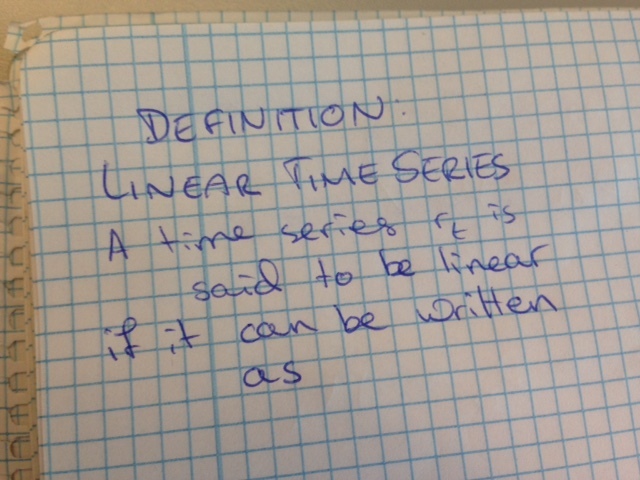 DEFINITION:
LINEAR TIME SERIES
A time series r_t is
said to be linear
if it can be written
as